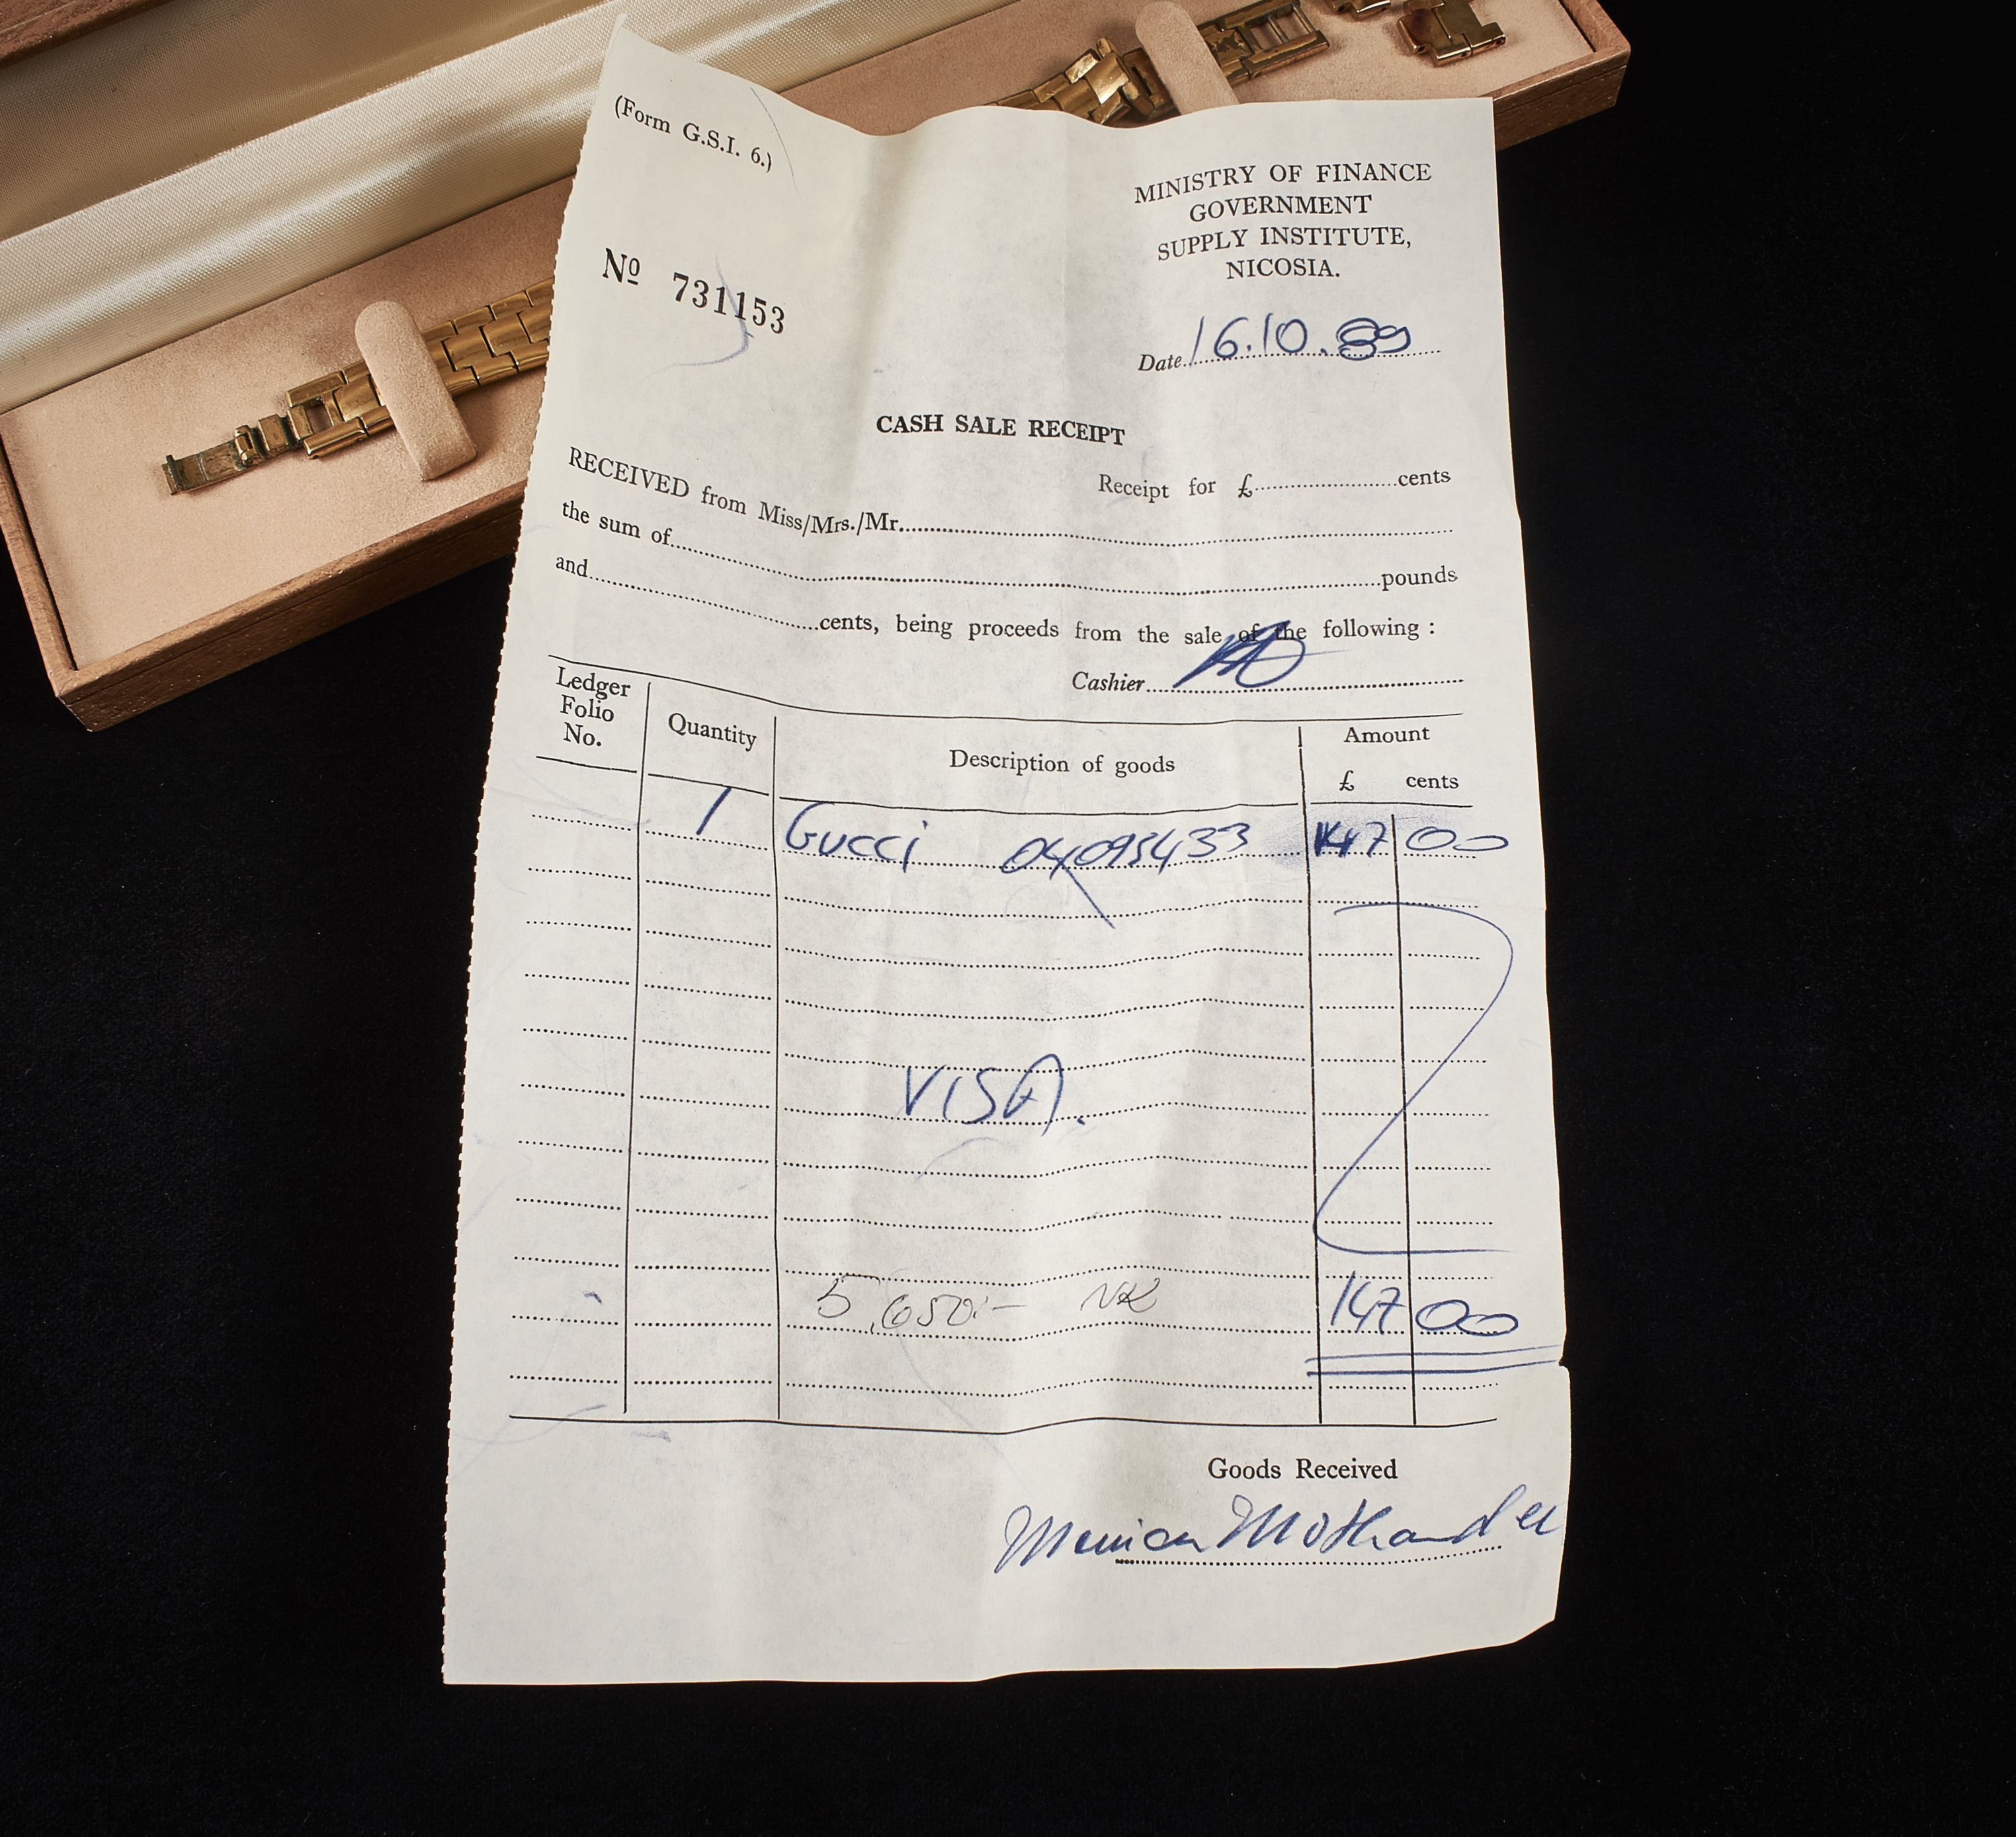 (Form G.S.I. 6.)
MINISTRY OF FINANCE
GOVERNMENT
SUPPLY INSTITUTE,
NICOSIA.
Nº 731153
Date 16.10.89
CASH SALE RECEIPT
Receipt for £ cents
RECEIVED from Miss/Mrs./Mr.
the sum of pounds
and cents, being proceeds from the sale of the following :
Cashier
Ledger Folio No. Quantity Description of goods Amount
£ cents
1 Gucci 04093433 147 00
VISA.
5,650:- NK 147 00
Goods Received